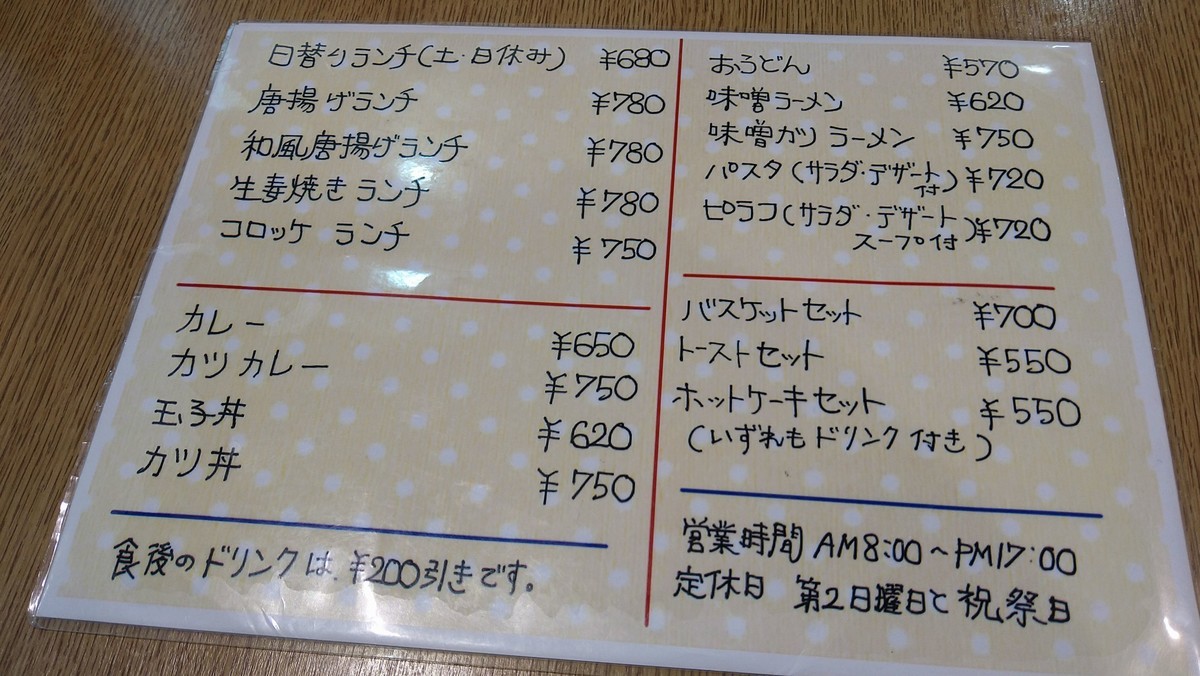 日替りランチ(土・日休み) ¥680
唐揚げランチ ¥780
和風唐揚げランチ ¥780
生姜焼きランチ ¥780
コロッケ ランチ ¥750
カレー ¥650
カツカレー ¥750
玉子丼 ¥620
カツ丼 ¥750
食後のドリンクは、¥200引きです。
おろどん ¥570
味噌ラーメン ¥620
味噌カツラーメン ¥750
パスタ(サラダ・デザート付) ¥720
ピラフ(サラダ・デザート
スープ付) ¥720
バスケットセット ¥700
トーストセット ¥550
ホットケーキセット ¥550
(いずれもドリンク付き)
営業時間 AM8:00〜PM17:00
定休日 第2日曜日と祝祭日